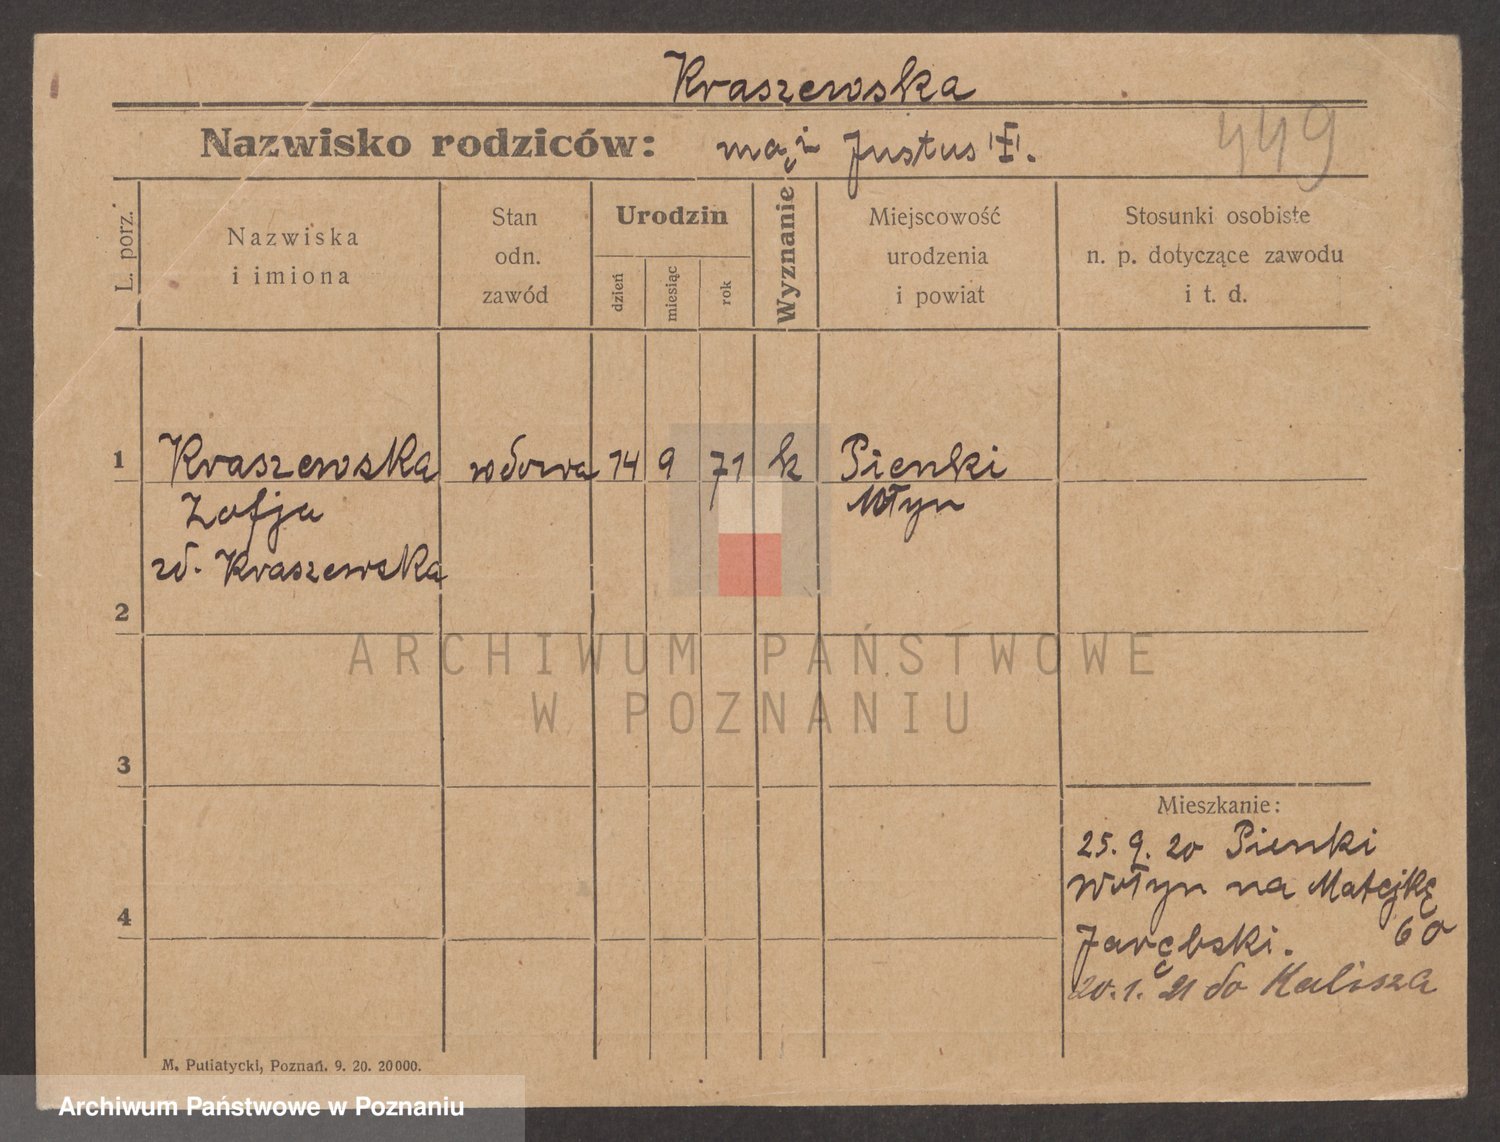 Kraszewska
Nazwisko rodziców: mąż Justus "I".
449
L. porz.
Nazwiska
i imiona
Stan
odn.
zawód
Urodzin
dzień
miesiąc
rok
Wyznanie
Miejscowość
urodzenia
i powiat
Stosunki osobiste
n. p. dotyczące zawodu
i t. d.
1 Kraszewska wdowa 14 9 71 k Pienki
Zofja Wołyn
zd. Kraszewska
2
ARCHIWUM PAŃSTWOWE
W POZNANIU
3
Mieszkanie:
25. 9. 20 Pienki
Wołyn na Matejkę
60
4
Jarębski.
20. 1. 21 do Kalisza
M. Putiatycki, Poznań. 9. 20. 20000.
Archiwum Państwowe w Poznaniu